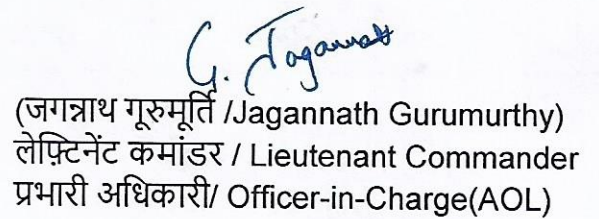 G. Jagannath
(जगन्नाथ गूरुमूर्ति /Jagannath Gurumurthy)
लेफ़्टिनेंट कमांडर / Lieutenant Commander
प्रभारी अधिकारी/ Officer-in-Charge(AOL)